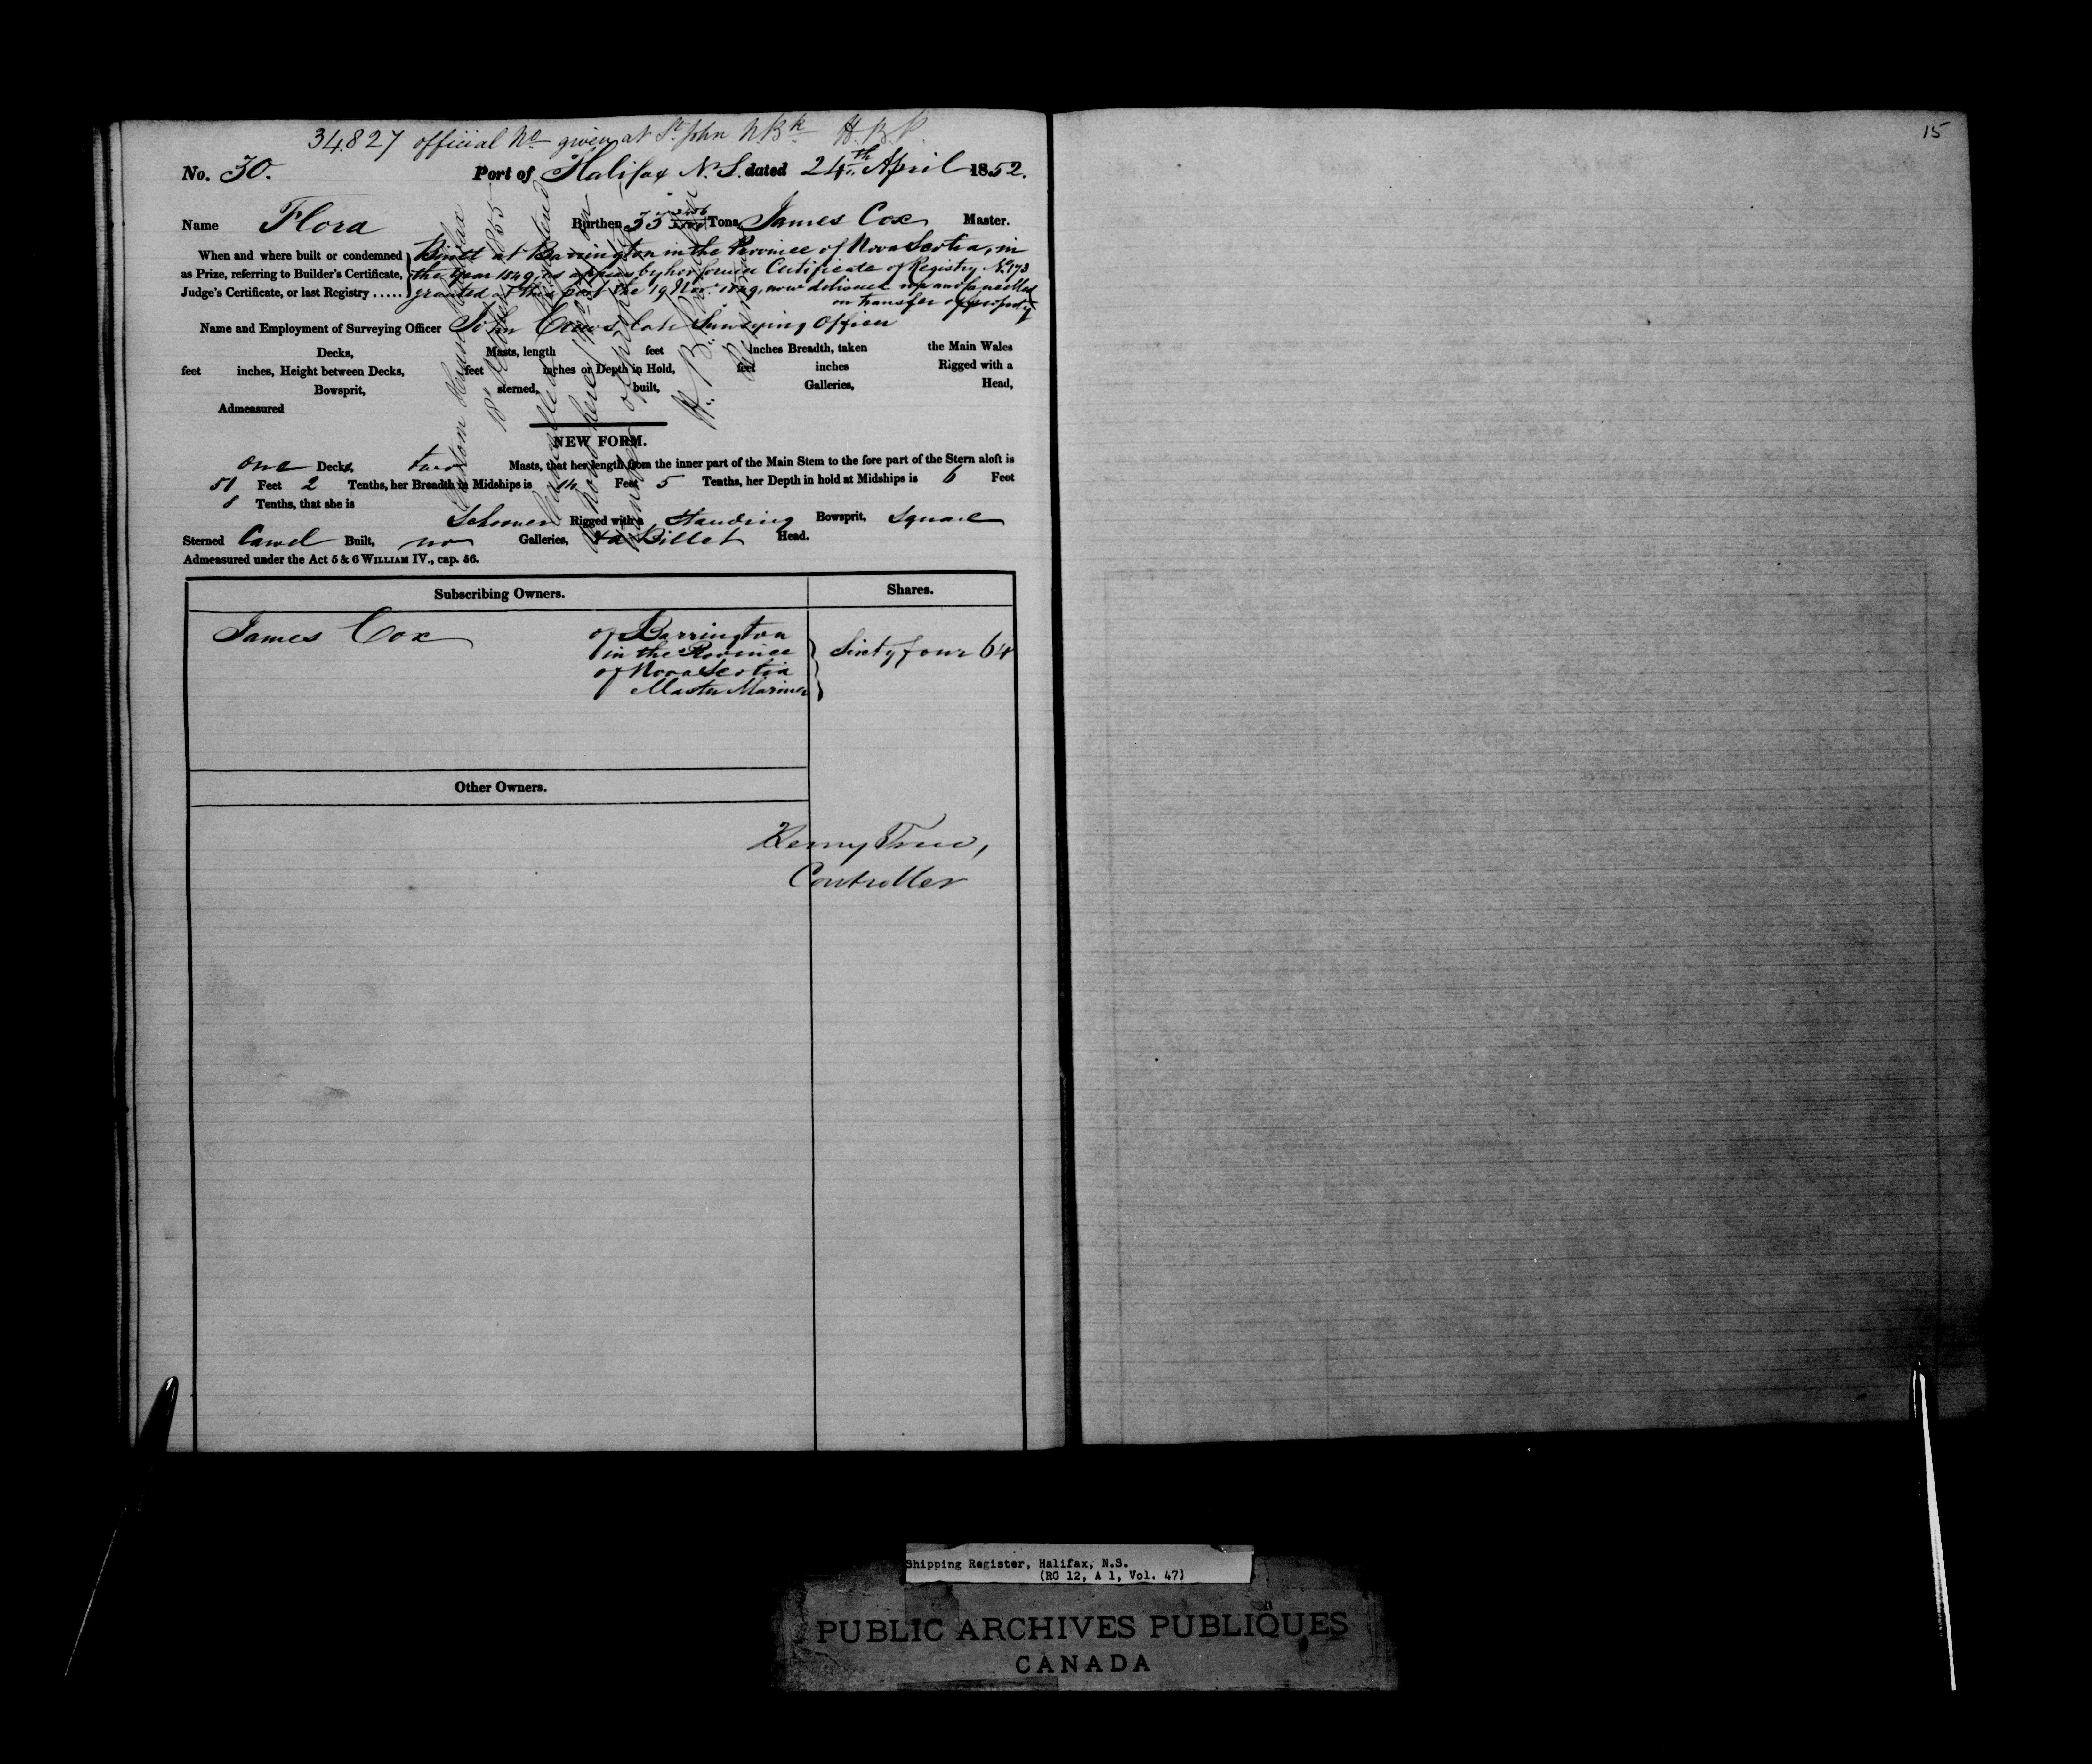 15
34827 official No given at St John N.Bk H.B.P.
No. 30. Port of Halifax N.S. dated 24th April 1852.
Name Flora Burthen 33 Tons James Cox Master.
When and where built or condemned as Prize, referring to Builder's Certificate, Judge's Certificate, or last Registry .....
Built at Barrington in the Province of Nova Scotia, in
the year 1849, as appears by her former Certificate of Registry No 173
granted at this port the 19 Nov. 1849, now delivered up and Cancelled
on transfer of property
Name and Employment of Surveying Officer John late Surveying Officer
Decks, Masts, length feet inches Breadth, taken the Main Wales
feet inches, Height between Decks, feet inches or Depth in Hold, feet inches Rigged with a
Bowsprit, sterned, built, Galleries, Head,
Admeasured
Custom House Halifax
1855
Cancelled
here
property
NEW FORM.
one Decks, two Masts, that her length from the inner part of the Main Stem to the fore part of the Stern aloft is
51 Feet 2 Tenths, her Breadth in Midships is 14 Feet 5 Tenths, her Depth in hold at Midships is 6 Feet
8 Tenths, that she is
Schooner Rigged with a Standing Bowsprit, Square
Sterned Carvel Built, no Galleries, & a Billet Head.
Admeasured under the Act 5 & 6 WILLIAM IV., cap. 56.
Subscribing Owners. Shares.
James Cox of Barrington
in the Province
of Nova Scotia
Master Mariner
Sixty four 64
Other Owners.
Henry
Controller
Shipping Register, Halifax, N.S.
(RG 12, A 1, Vol. 47)
PUBLIC ARCHIVES PUBLIQUES
CANADA